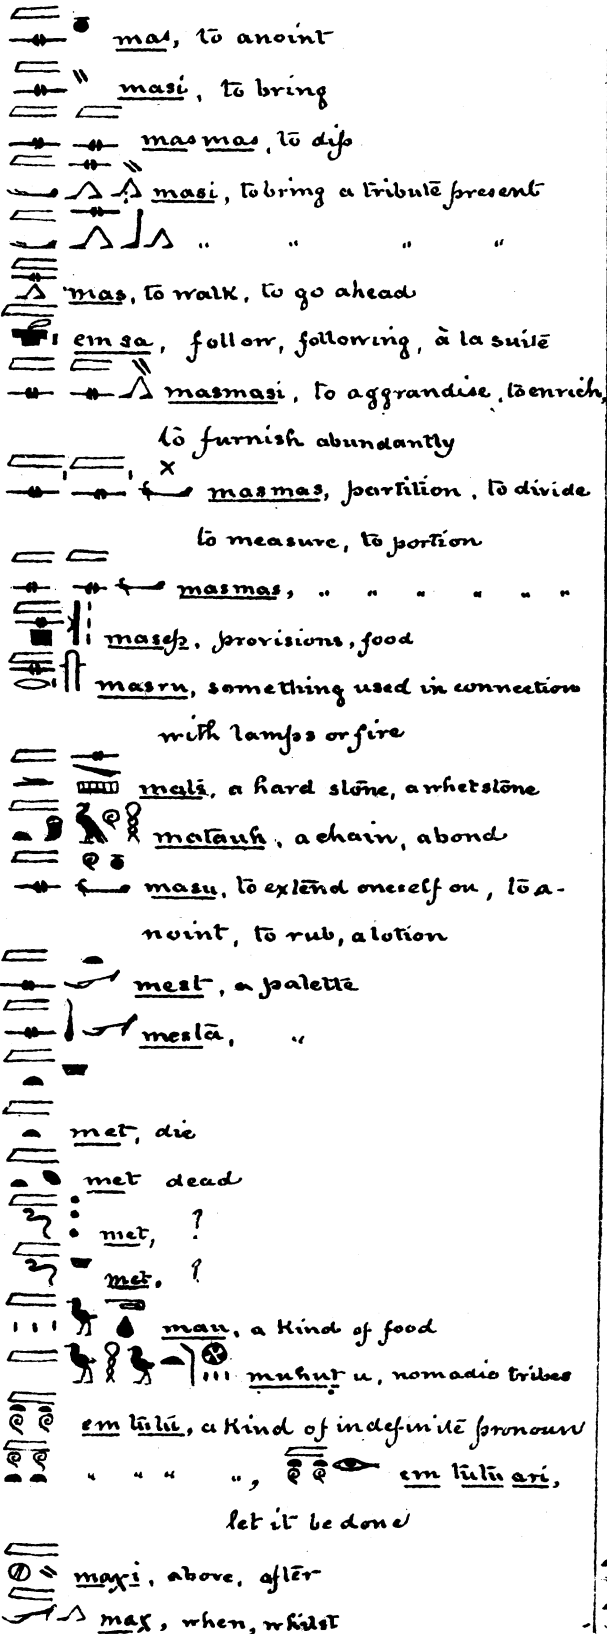 mas, to anoint
masi, to bring
masmas, to dip
masi, to bring a tribute present
" " " "
mas, to walk, to go ahead
em sa, follow, following, à la suite
masmasi, to aggrandise, to enrich,
to furnish abundantly
masmas, partition, to divide
to measure, to portion
masmas, " " " " " "
masep, provisions, food
masru, something used in connection
with lamps or fire
a hard stone, a whetstone
matauh, a chain, a bond
masu, to extend oneself on, to a-
noint, to rub, a lotion
mest, a palette
mestā, "
met, die
met dead
met, ?
met. ?
mau, a kind of food
muhut u, nomadic tribes
em tutu, a kind of indefinite pronoun
" " " ", em tutu ari,
let it be done
maχi, above, after
maχ, when, whilst